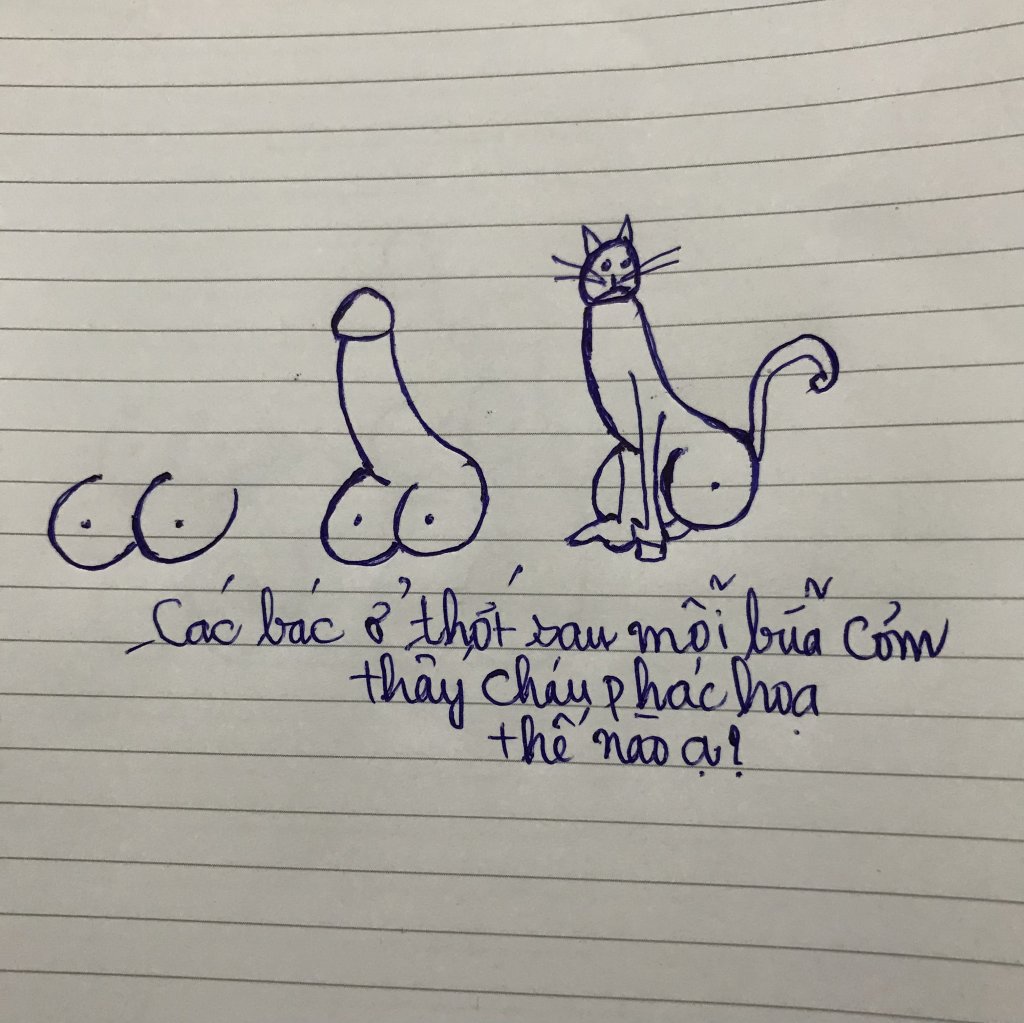 Các bác ở thớt sau mỗi bữa cơm
thấy cháu phác hoạ
thế nào ạ?